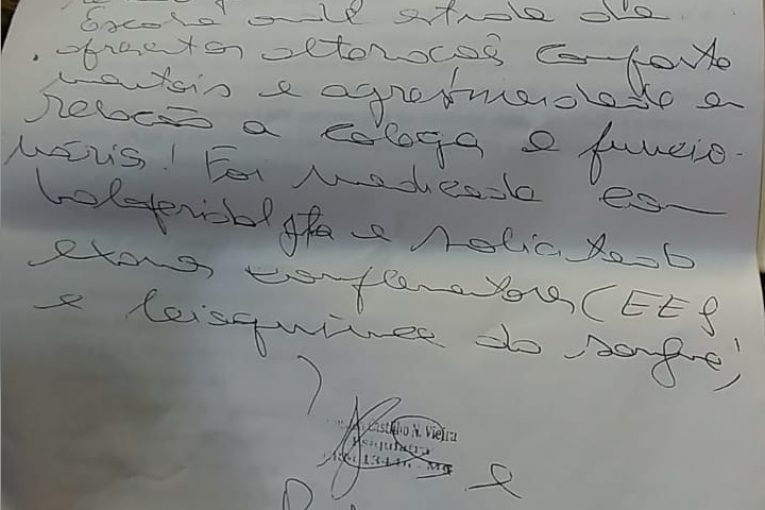 Escola onde estuda ela
apresentou alterações comporta
mentais e agressividade em
relação a colega e funcio-
nários! Foi medicada com
haloperidol gts e solicitado
exames complementares (EEG
e bioquímica do sangue)
Castilho N. Vieira
Psiquiatra
e